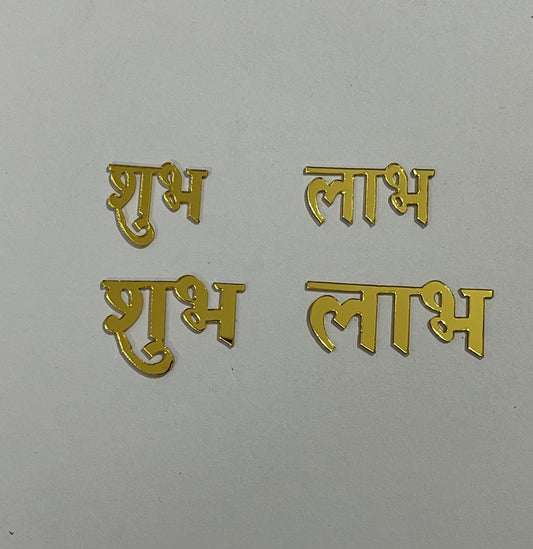 शुभ लाभ
शुभ लाभ